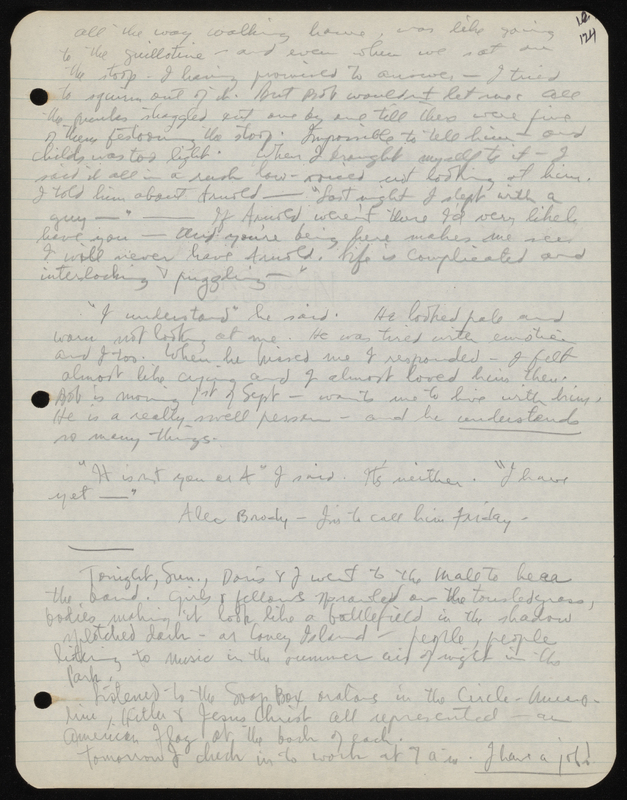 124
all the way walking home, was like going
to the guillotine - and even when we sat on
the stoop - I having promised to answer - I tried
to squirm out of it. But Bob wouldn't let me. All
the straggled out one by one till there were five
of them festooning the stoop. Impossible to tell him - and
childs was too light. When I brought myself to it - I
said it all in a rush low-voiced not looking at him.
I told him about Arnold — "Last night I slept with a
guy —" —— If Arnold weren't there I'd very likely
have you — but you're being here makes me see
I will never have Arnold. Life is complicated and
interlocking & puzzling —"
"I understand" he said. He looked pale and
worn not looking at me. He was tired with emotion
and I too. When he kissed me I responded - I felt
almost like crying and I almost loved him then.
Bob is moving 1st of Sept - wants me to live with him.
He is a really swell person - and he understands
so many things.
"It isn't you or A" I said. It's neither. "I have
yet —"
Alec Brody - I'm to call him Friday -
Tonight, Sun., Doris & I went to the Mall to hear
the band. Girls & fellows sprawled on the tousled grass,
bodies making it look like a battlefield in the shadow
splotched dark - or Coney Island - people, people
listening to music in the summer air of night in the
Park.
Listened to the Soap Box orators in the Circle -
Hitler & Jesus Christ all represented - an
American Flag at the back of each.
Tomorrow I check in to work at 9 a.m. I have a job!